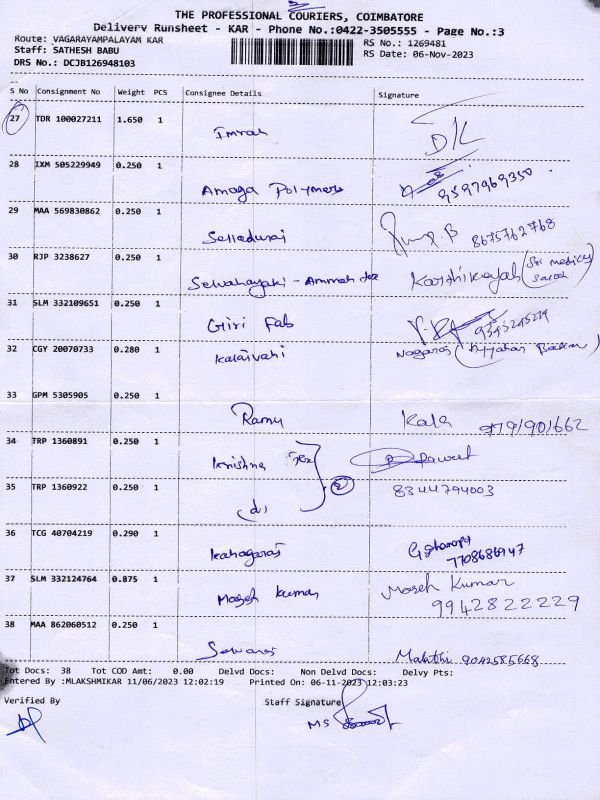 THE PROFESSIONAL COURIERS, COIMBATORE
Delivery Runsheet - KAR - Phone No.:0422-3505555 - Page No.:3
Route: VAGARAYAMPALAYAM KAR
RS No.: 1269481
Staff: SATHESH BABU
RS Date: 06-Nov-2023
DRS No.: DCJB126948103
S No Consignment No Weight PCS Consignee Details Signature
27 TDR 100027211 1.650 1 Imran DK
28 IXM 505229949 0.250 1 Amoga Polymers 9597969350
29 MAA 569830862 0.250 1 Selladurai B 8675762768
30 RJP 3238627 0.250 1
31 SLM 332109651 0.250 1 Giri Fab 9345245274
32 CGY 20070733 0.280 1 Kalaivani Nagaraj
33 GPM 5305905 0.250 1 Ramu Kala 9791901662
34 TRP 1360891 0.250 1 Krishna Tex
35 TRP 1360922 0.250 1 (d) 2 8344794003
36 TCG 40704219 0.290 1 Kanagaraj 7708686947
37 SLM 332124764 0.875 1 Moseh Kumar Moseh Kumar
9942822229
38 MAA 862060512 0.250 1 Selvaraj 9042585668
Tot Docs: 38 Tot COD Amt: 0.00 Delvd Docs: Non Delvd Docs: Delvy Pts:
Entered By :MLAKSHMIKAR 11/06/2023 12:02:19 Printed On: 06-11-2023 12:03:23
Verified By Staff Signature
MS